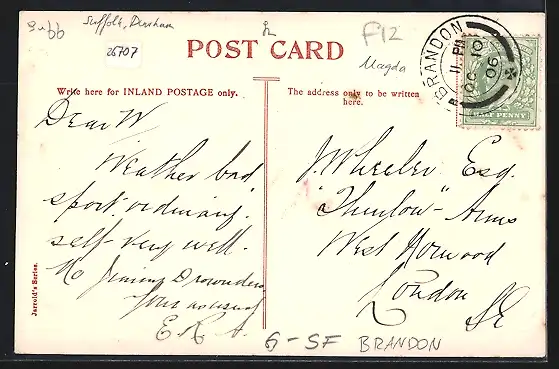 Suffolk, Dereham
26707
F12
Magda
POST CARD
BRANDON
11 PM
OC 10
06
HALF PENNY
Write here for INLAND POSTAGE only.
The address only to be written
here.
Dear W
Weather bad,
sport ordinary.
self-very well.
No Jimmy
Yours as usual
E.R.
J. Wheeler Esq.
"Thurlow" Arms
West Norwood
London
SE
Jarrold's Series.
G-SF BRANDON